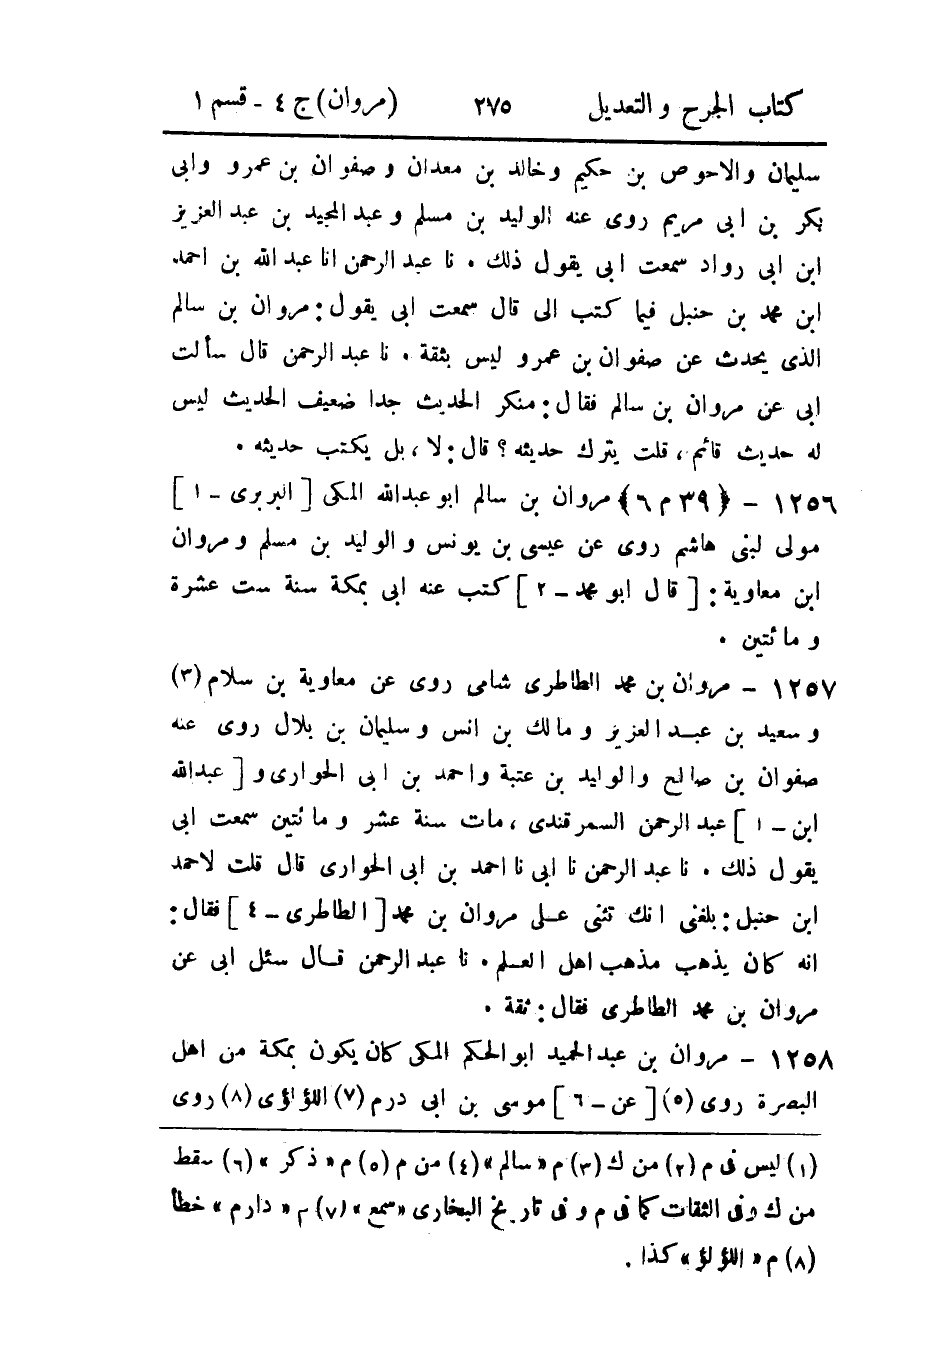 كتاب الجرح والتعديل ٢٧٥ (مروان) ج ٤ - قسم ١
سليمان والاحوص بن حكيم وخالد بن معدان وصفوان بن عمرو وابى
بكر بن ابى مريم روى عنه الوليد بن مسلم وعبد المجيد بن عبد العزيز
ابن ابى رواد سمعت ابى يقول ذلك . نا عبد الرحمن انا عبد الله بن احمد
ابن محمد بن حنبل فيما كتب الى قال سمعت ابى يقول : مروان بن سالم
الذى يحدث عن صفوان بن عمرو ليس بثقة . نا عبد الرحمن قال سألت
ابى عن مروان بن سالم فقال : منكر الحديث جدا ضعيف الحديث ليس
له حديث قائم ، قلت يترك حديثه ؟ قال : لا ، بل يكتب حديثه .
١٢٥٦ - ﴿٣٩ م ٦﴾ مروان بن سالم ابو عبدالله المكى [ البربرى - ١ ]
مولى لبنى هاشم روى عن عيسى بن يونس والوليد بن مسلم ومروان
ابن معاوية : [ قال ابو محمد - ٢ ] كتب عنه ابى بمكة سنة ست عشرة
ومائتين .
١٢٥٧ - مروان بن محمد الطاطرى شامى روى عن معاوية بن سلام (٣)
وسعيد بن عبد العزيز ومالك بن انس وسليمان بن بلال روى عنه
صفوان بن صالح والوليد بن عتبة واحمد بن ابى الحوارى و [ عبدالله
ابن - ١ ] عبد الرحمن السمرقندى ، مات سنة عشر ومائتين سمعت ابى
يقول ذلك . نا عبد الرحمن نا ابى نا احمد بن ابى الحوارى قال قلت لاحمد
ابن حنبل : بلغنى انك تثنى على مروان بن محمد [ الطاطرى - ٤ ] فقال :
انه كان يذهب مذهب اهل العلم . نا عبد الرحمن قال سئل ابى عن
مروان بن محمد الطاطرى فقال : ثقة .
١٢٥٨ - مروان بن عبد الحميد ابو الحكم المكى كان يكون بمكة من اهل
البصرة روى (٥) [ عن - ٦ ] موسى بن ابى درم (٧) اللؤلؤى (٨) روى
(١) ليس فى م (٢) من ك (٣) م « سالم » (٤) من م (٥) م « ذكر » (٦) سقط
من ك وفى الثقات كما فى م وفى تاريخ البخارى « سمع » (٧) م « دارم » خطأ
(٨) م « اللؤلؤ » كذا .